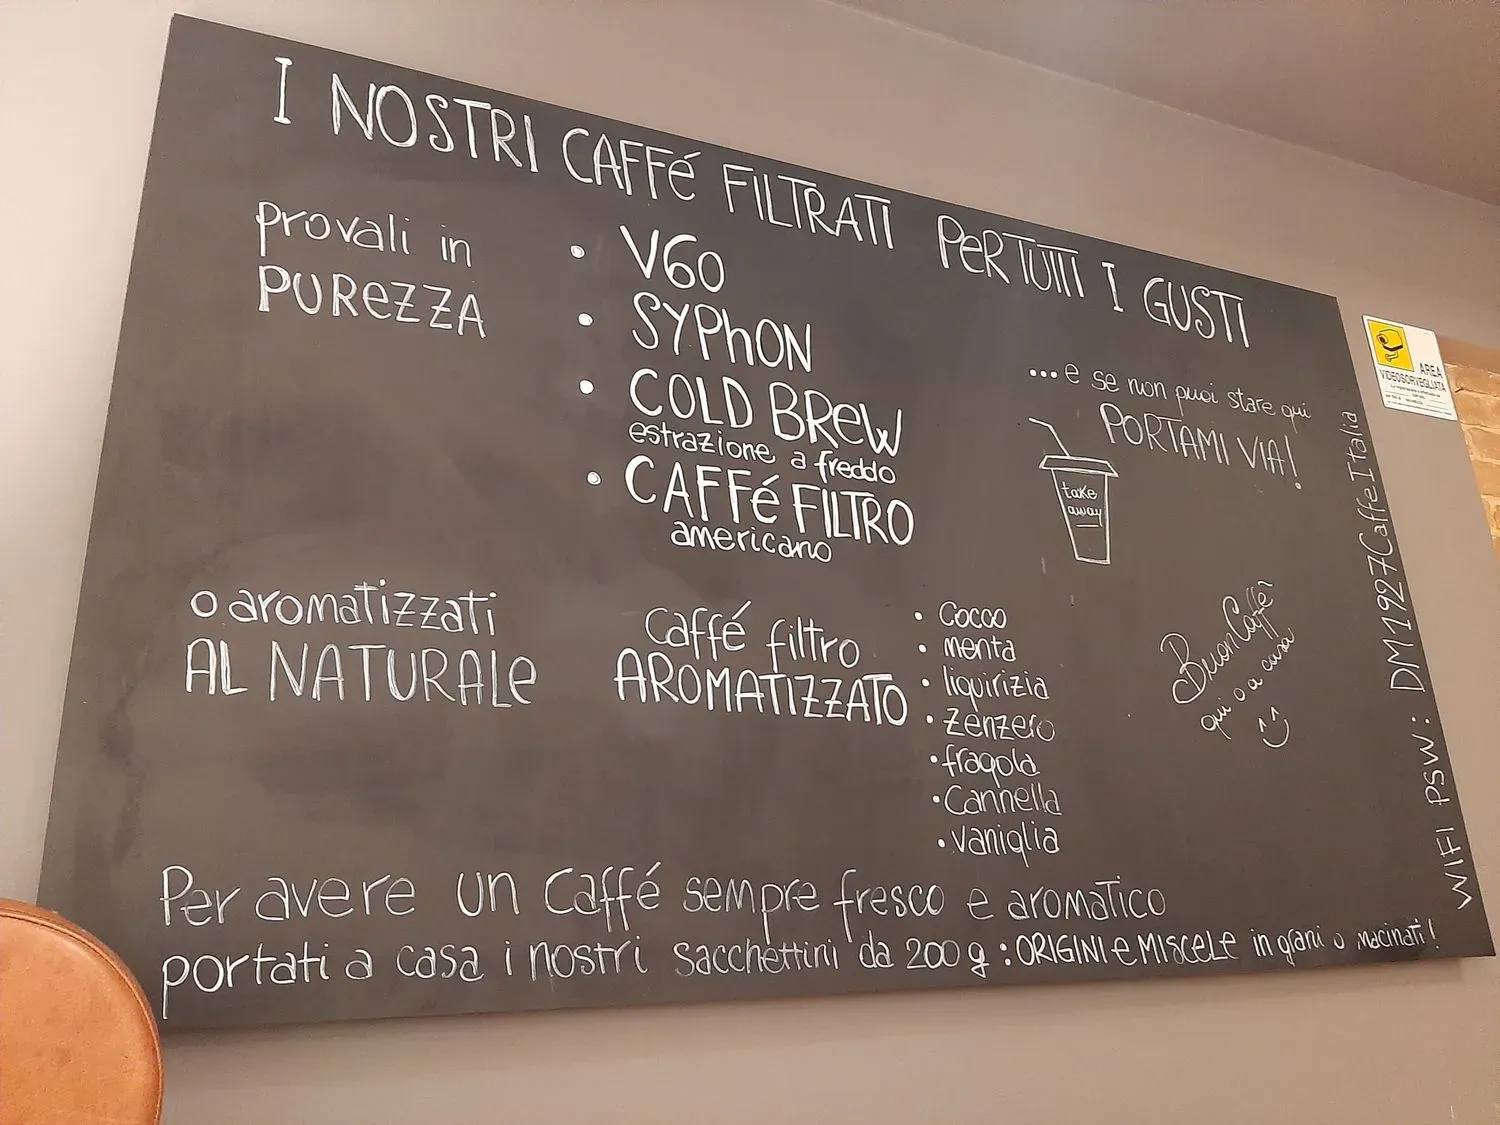 I NOSTRI CAFFé FILTRATI PeR TUTTI I GUSTI
provali in
PUReZZA
• V60
• SYPhON
• COLD BReW
estrazione a freddo
• CAFFé FILTRO
americano
...e se non puoi stare qui
PORTAMI VIA!
take
away
o aromatizzati
AL NATURALe
Caffé filtro
AROMATIZZATO
• Cocco
• menta
• liquirizia
• Zenzero
• fragola
• Cannella
• vaniglia
Buon Caffè!
qui o a casa
Per avere un Caffé sempre fresco e aromatico
portati a casa i nostri sacchettini da 200 g : ORIGINI e MISCeLe in grani o macinati!
WIFI PSW: DM1927CaffeItalia
AREA
VIDEOSORVEGLIATA